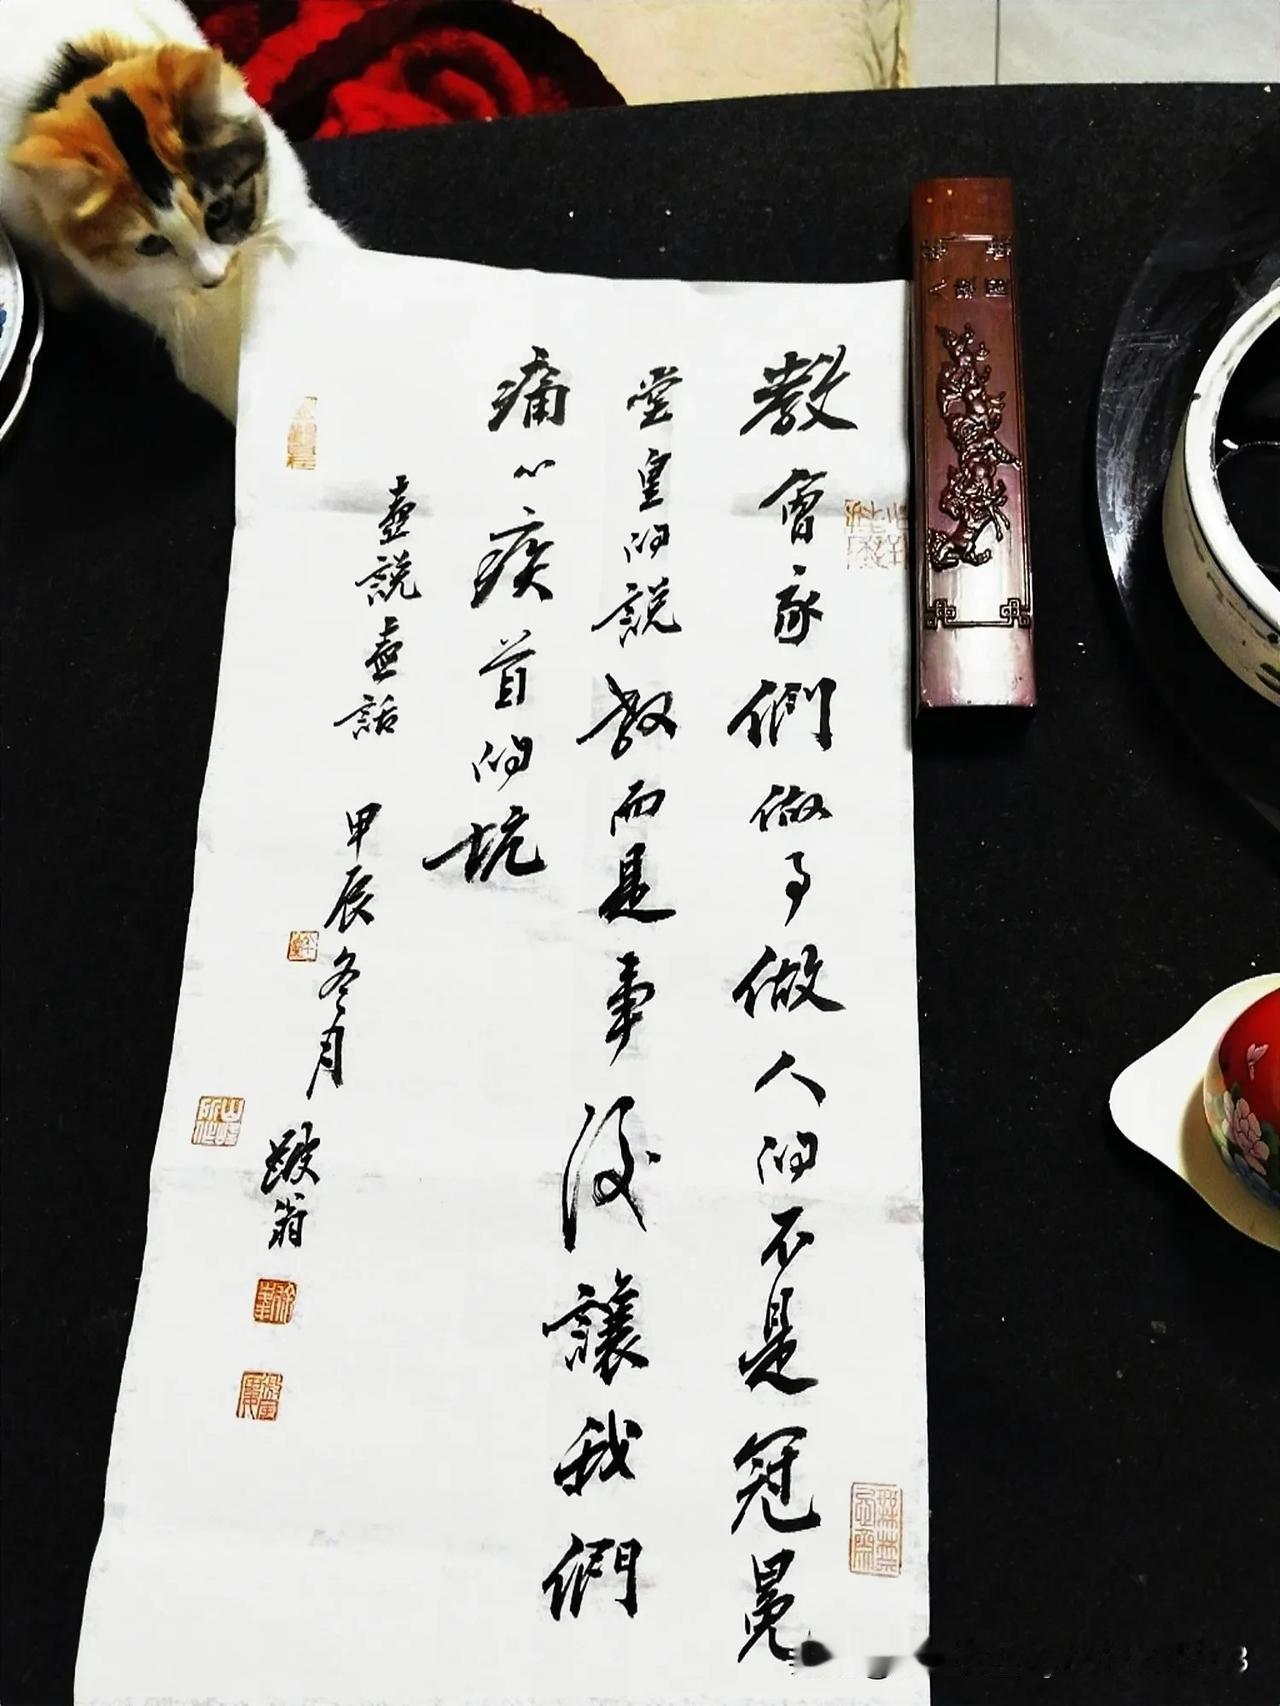 教會我們做事做人的不是冠冕
堂皇的説教而是事後讓我們
痛心疾首的坑
壺説壺話 甲辰冬月 跛翁